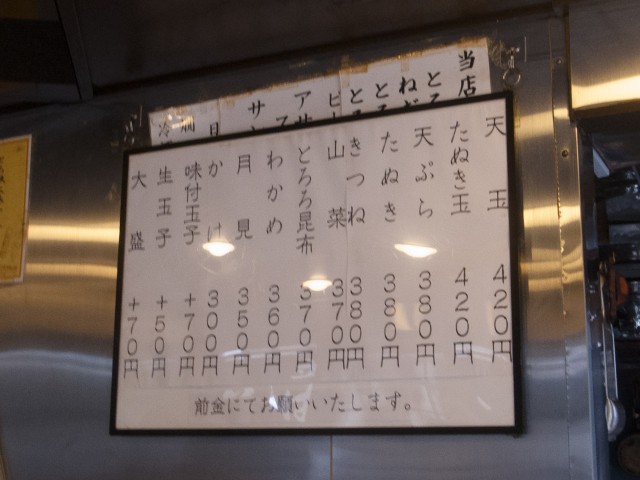 天玉 420円
たぬき玉 420円
天ぷら 380円
たぬき 380円
きつね 380円
山菜 370円
とろろ昆布 370円
わかめ 360円
月見 350円
かけ 300円
味付玉子 +70円
生玉子 +50円
大盛 +70円
前金にてお願いいたします。
当店